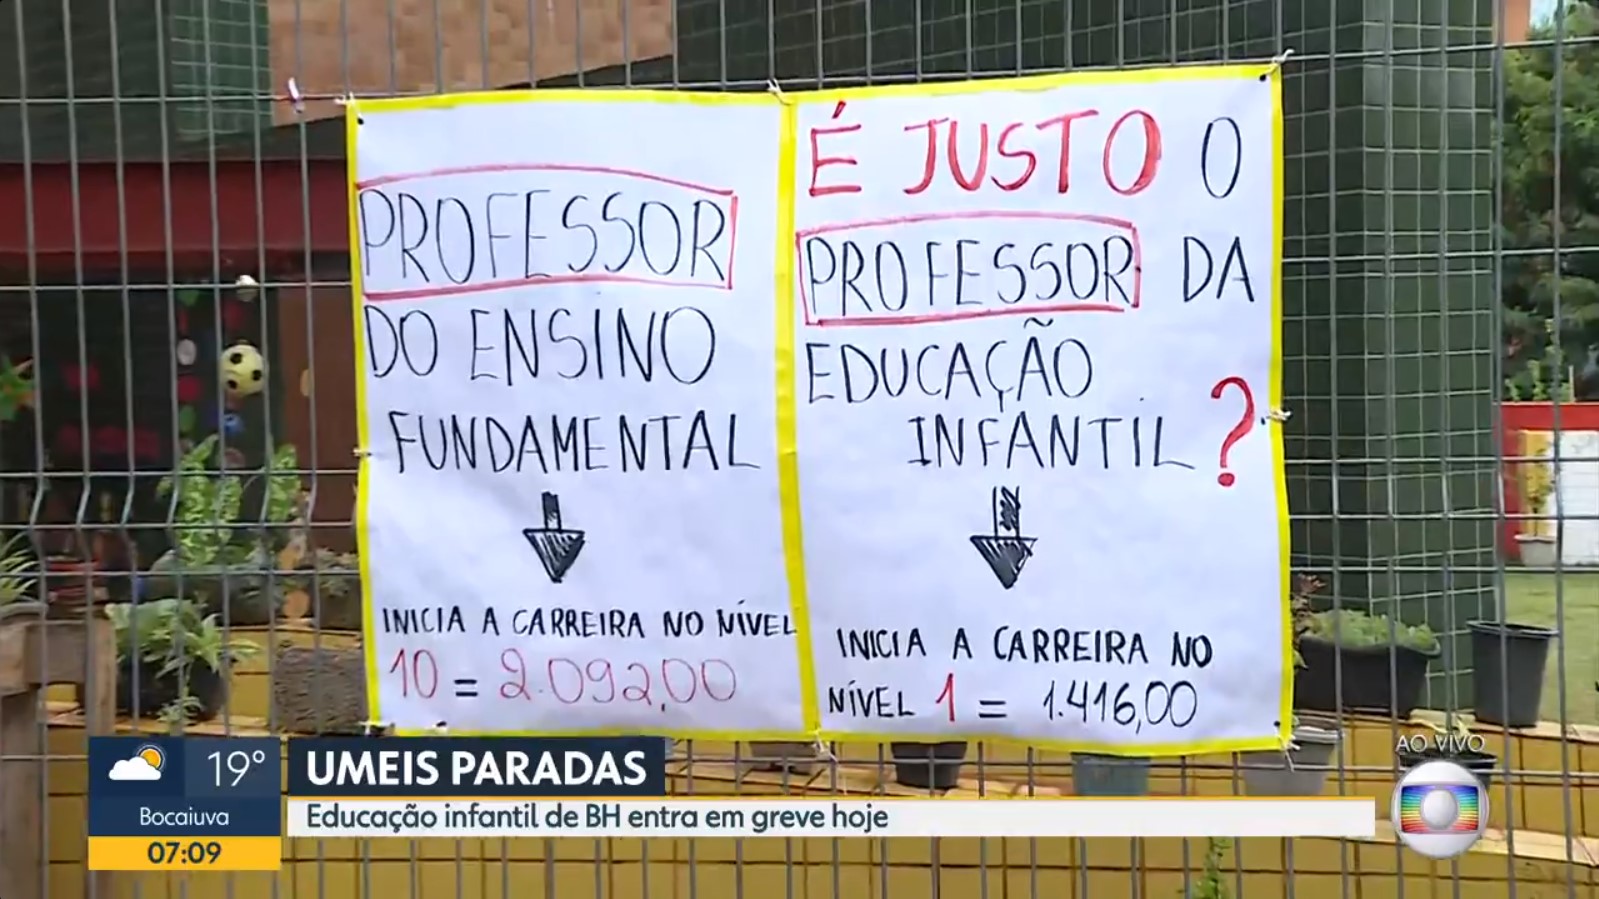 PROFESSOR
DO ENSINO
FUNDAMENTAL
INICIA A CARREIRA NO NÍVEL
10 = 2.092,00
É JUSTO O
PROFESSOR DA
EDUCAÇÃO
INFANTIL ?
INICIA A CARREIRA NO
NÍVEL 1 = 1.416,00
AO VIVO
19°
Bocaiuva
07:09
UMEIS PARADAS
Educação infantil de BH entra em greve hoje